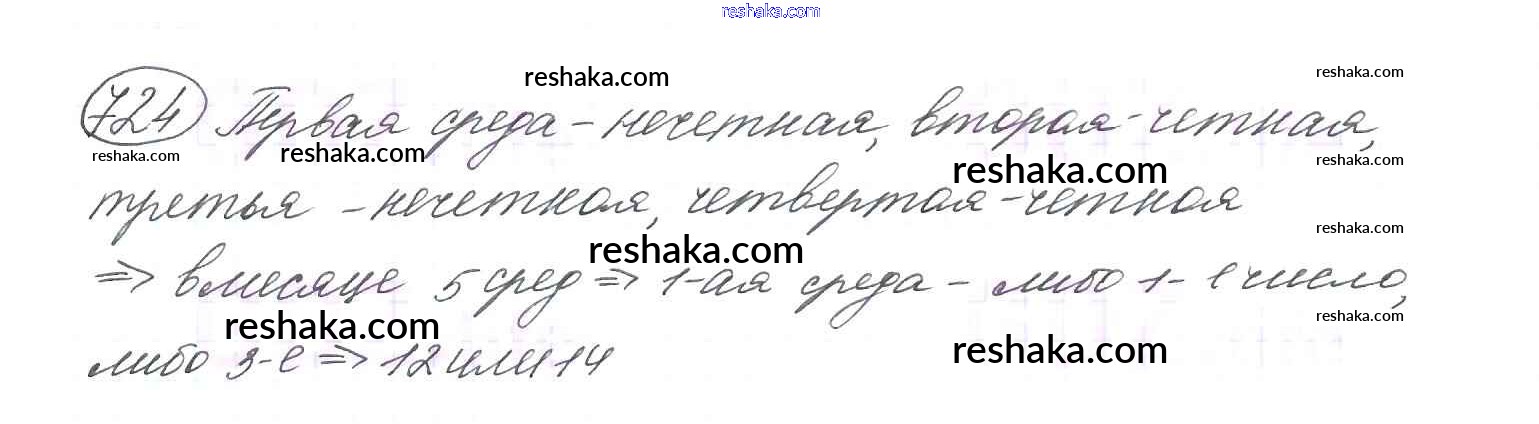 reshaka.com
reshaka.com
reshaka.com
724 Первая среда - нечетная, вторая - четная,
reshaka.com
reshaka.com
reshaka.com
reshaka.com
третья - нечетная, четвертая - четная
reshaka.com
reshaka.com
=> в месяце 5 сред => 1-ая среда - либо 1-е число,
reshaka.com
reshaka.com
reshaka.com
либо 3-е => 12 или 14